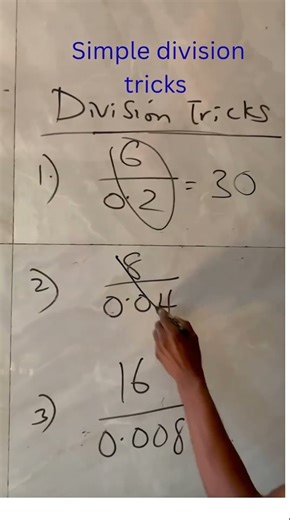 Simple division
tricks
Division Tricks
1) 6/0.2 = 30
2) 8/0.04
3) 16/0.008